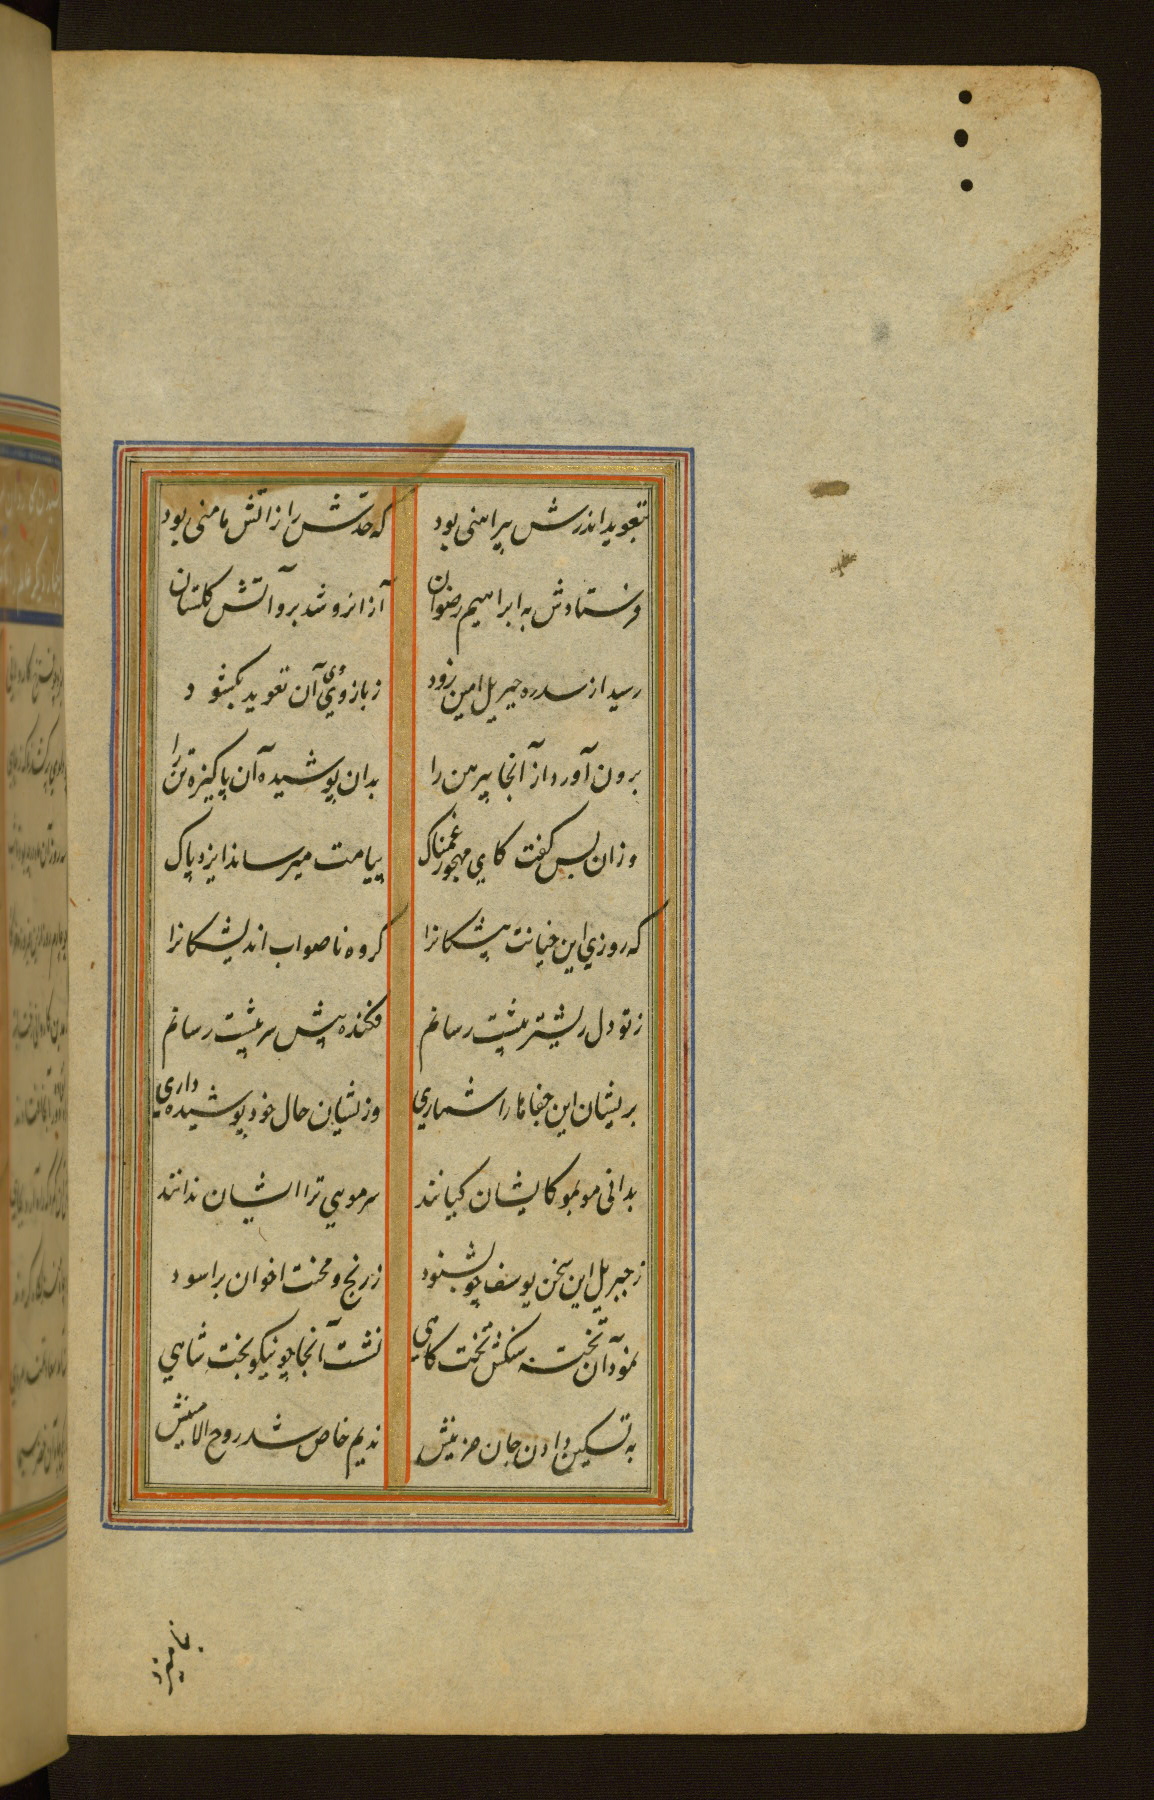 بتعویذ اندرش پیراهنی بود که جدش را ز اتش مامنی بود
فرستادش به ابراهیم رضوان از انرو شد برو آتش گلستان
رسید از سدره جبریل امین زود ز بازوی وی آن تعویذ بگشود
برون آورد از آنجا پیرهن را بدان پوشیده آن پاکیزه تن را
وزان پس گفت کای مهجور غمناک پیامت میرساند ایزد پاک
که روزی این خیانت پیشکانرا کروه ناصواب اندیشکانرا
ز تو دل ریشتر پیشت رسانم فکنده پیش سر پیشت رسانم
بریشان این جفاها را شماری وزیشان حال خود پوشیده داری
بدانی مو بمو کایشان کیانند سر مویی ترا ایشان ندانند
ز جبریل این سخن یوسف چو بشنود ز رنج و محنت اخوان براسود
نمود آن تخته سنکش تخت کاهی نشست آنجا چو نیکو بخت شاهی
به تسکین دادن جان حزینش ندیم خاص شد روح الامینش